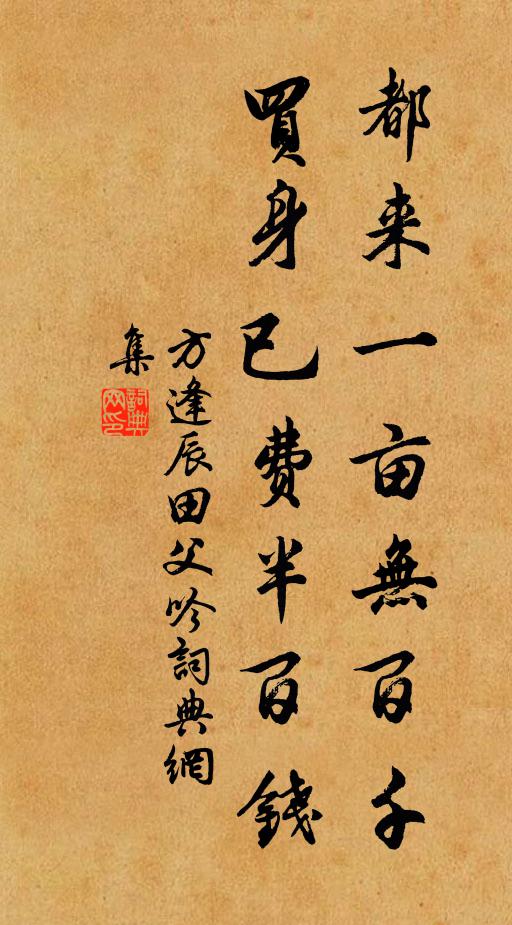 都来一亩無百千
買身已费半百錢
方逢辰田父吟詞典網
集
詞典
网印